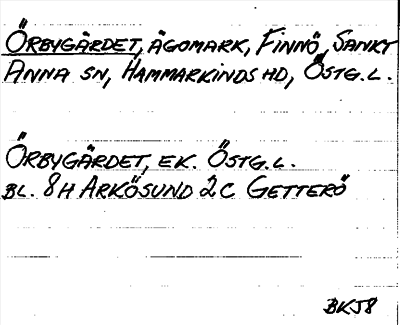 ÖRBYGÄRDET, ÄGOMARK, FINNÖ, SANKT
ANNA SN, HAMMARKINDS HD, ÖSTG.L.
ÖRBYGÄRDET, EK. ÖSTG.L.
BL. 8H ARKÖSUND 2C GETTERÖ
BKJ8